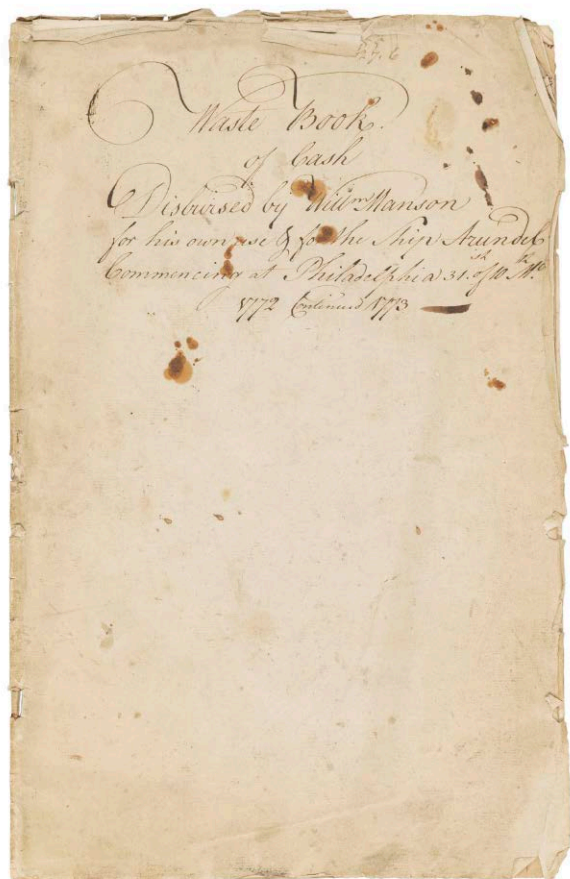 Waste Book.
of Cash
Disbursed by Will.m Manson
for his own use & for the Ship Arundel
Commencing at Philadelphia 31.st of 10.th Mo.
1772 Continued 1773